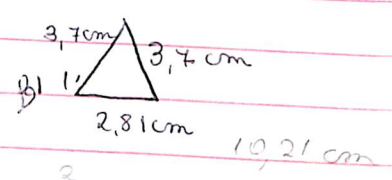 3,7cm
3,7 cm
2,81cm
10,21 cm